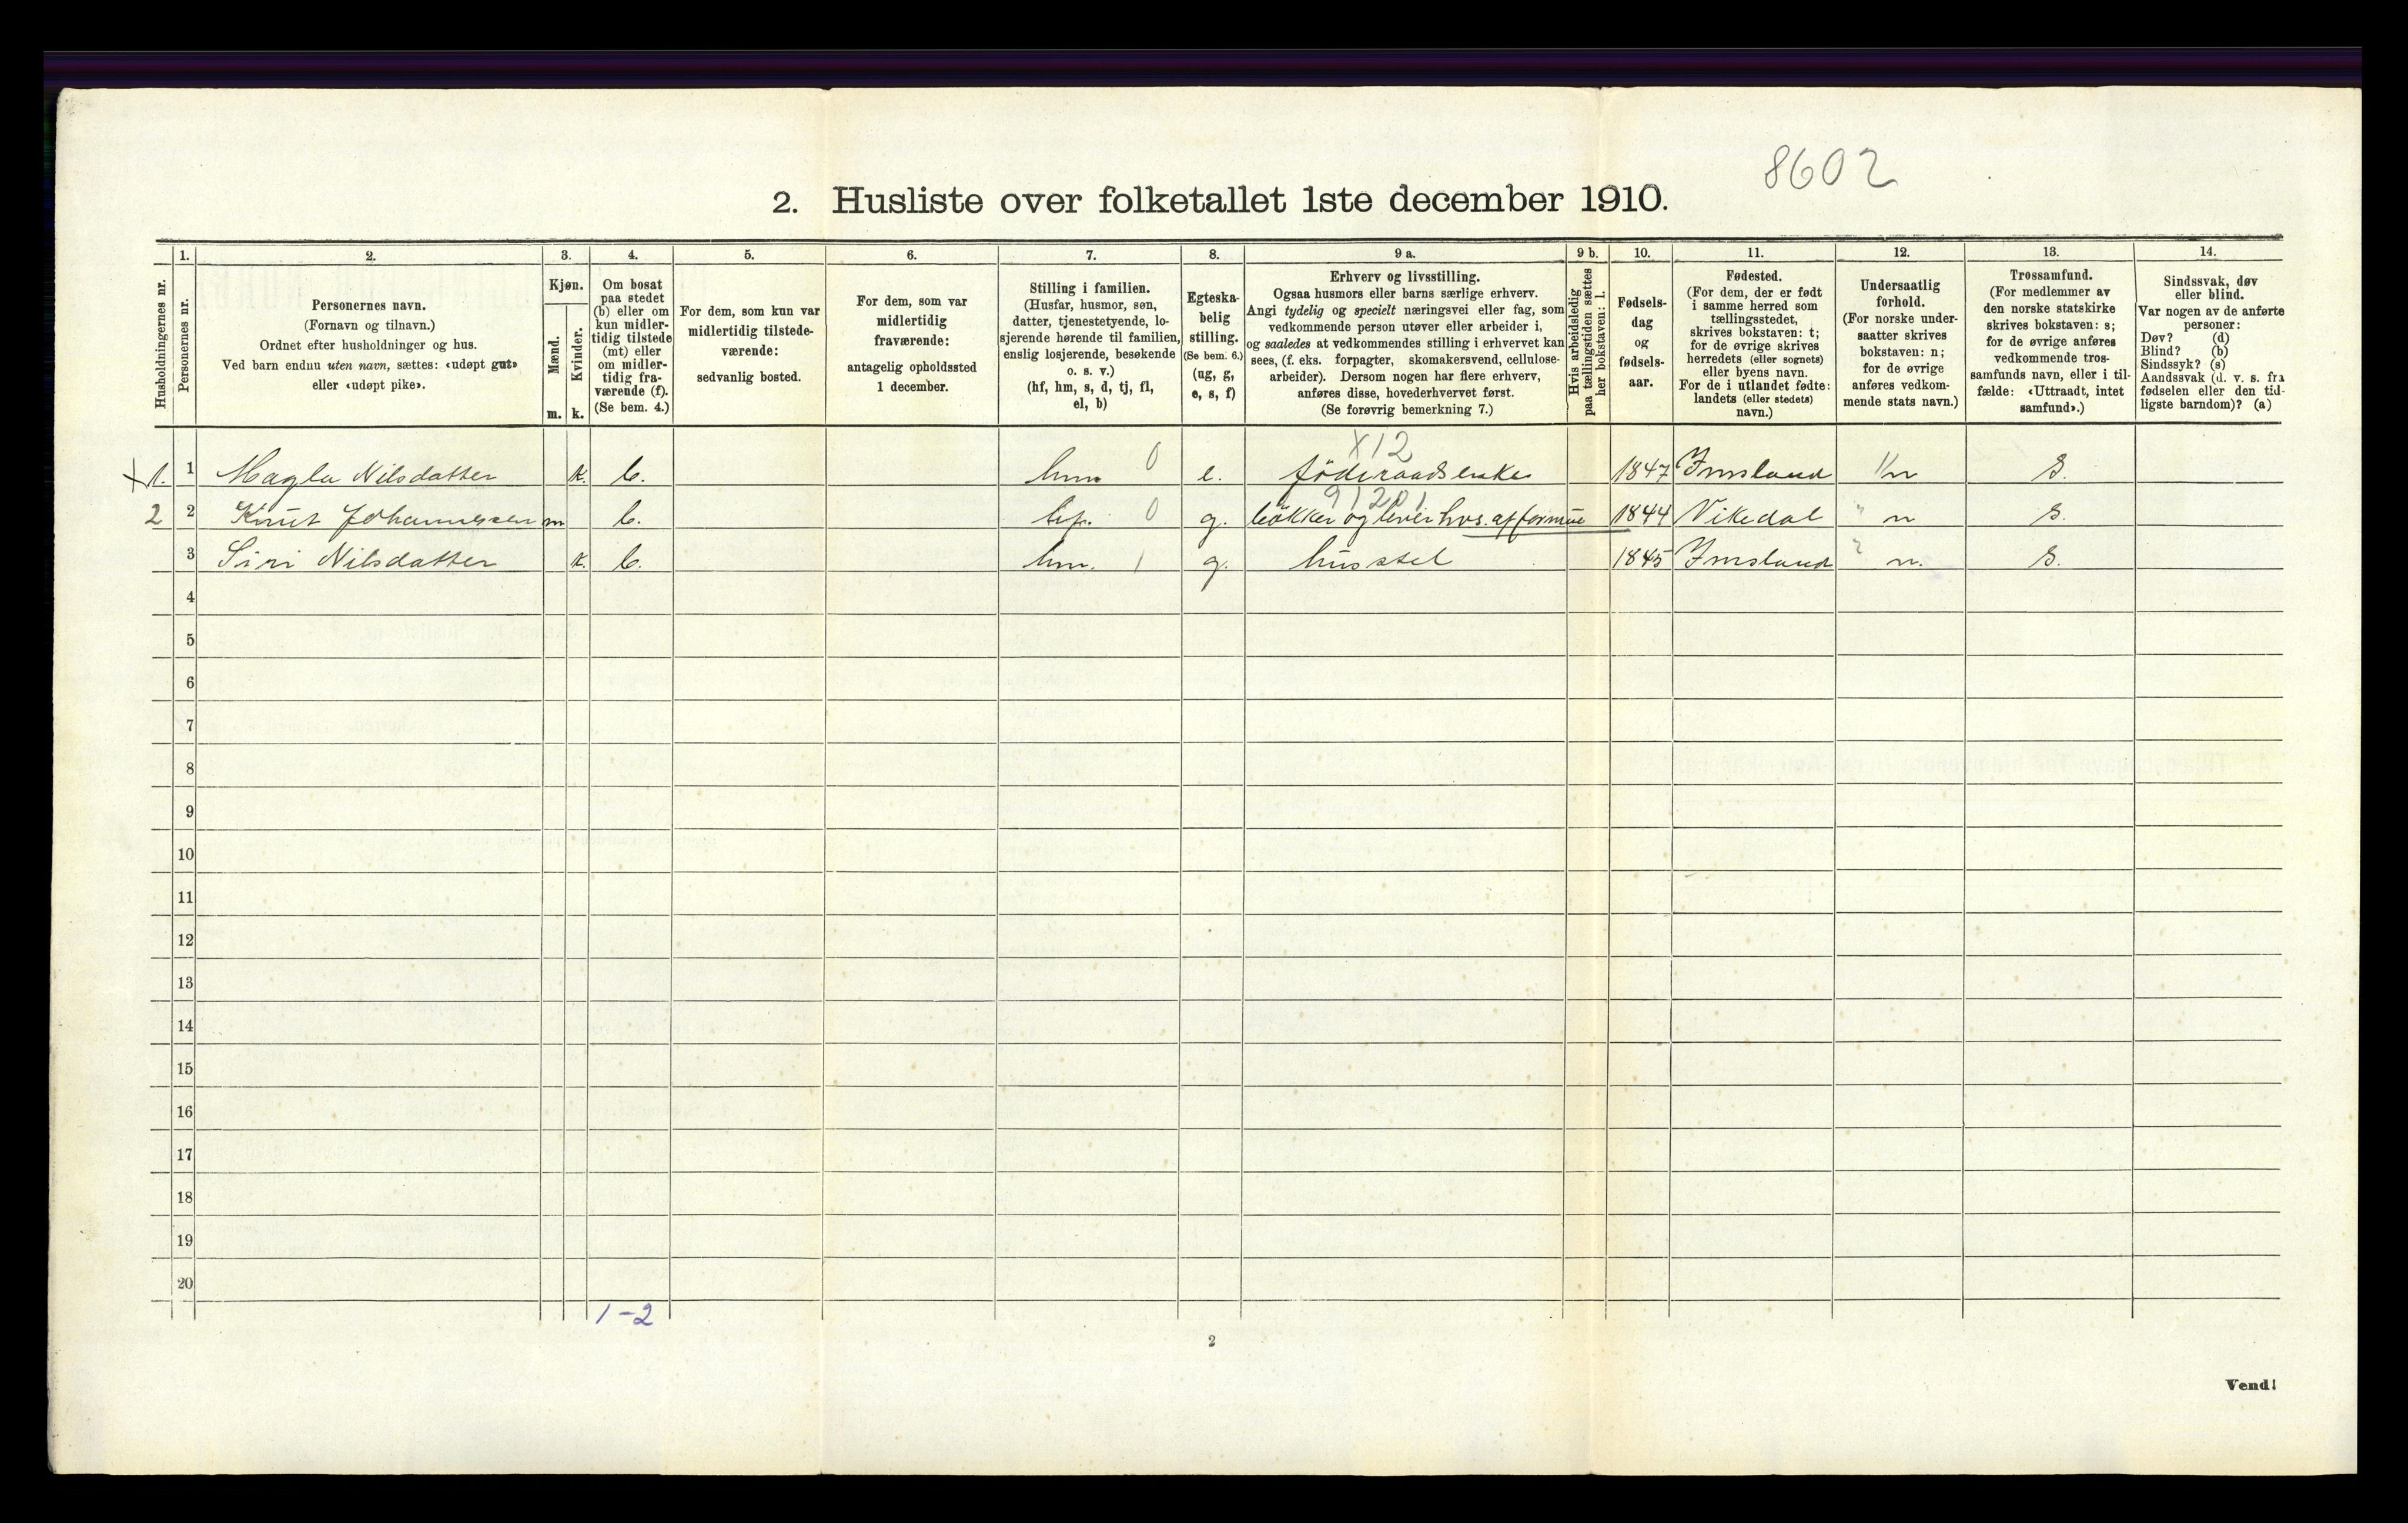 8602
2. Husliste over folketallet 1ste december 1910.
Husholdningernes nr.
1.
Personernes nr.
2.
Personernes navn.
(Fornavn og tilnavn.)
Ordnet efter husholdninger og hus.
Ved barn endnu uten navn, sættes: «udøpt gut»
eller «udøpt pike».
3.
Kjøn.
Mænd.
Kvinder.
m. k.
4.
Om bosat
paa stedet
(b) eller om
kun midler-
tidig tilstede
(mt) eller
om midler-
tidig fra-
værende (f).
(Se bem. 4.)
5.
For dem, som kun var
midlertidig tilstede-
værende:
sedvanlig bosted.
6.
For dem, som var
midlertidig
fraværende:
antagelig opholdssted
1 december.
7.
Stilling i familien.
(Husfar, husmor, søn,
datter, tjenestetyende, lo-
sjerende hørende til familien,
enslig losjerende, besøkende
o. s. v.)
(hf, hm, s, d, tj, fl,
el, b)
8.
Egteska-
belig
stilling.
(Se bem. 6.)
(ug, g,
e, s, f)
9 a.
Erhverv og livsstilling.
Ogsaa husmors eller barns særlige erhverv.
Angi tydelig og specielt næringsvei eller fag, som
vedkommende person utøver eller arbeider i,
og saaledes at vedkommendes stilling i erhvervet kan
sees, (f. eks. forpagter, skomakersvend, cellulose-
arbeider). Dersom nogen har flere erhverv,
anføres disse, hovederhvervet først.
(Se forøvrig bemerkning 7.)
9 b.
Hvis arbeidsledig
paa tællingstiden sættes
her bokstaven: l.
10.
Fødsels-
dag
og
fødsels-
aar.
11.
Fødested.
(For dem, der er født
i samme herred som
tællingsstedet,
skrives bokstaven: t;
for de øvrige skrives
herredets (eller sognets)
eller byens navn.
For de i utlandet fødte:
landets (eller stedets)
navn.)
12.
Undersaatlig
forhold.
(For norske under-
saatter skrives
bokstaven: n;
for de øvrige
anføres vedkom-
mende stats navn.)
13.
Trossamfund.
(For medlemmer av
den norske statskirke
skrives bokstaven: s;
for de øvrige anføres
vedkommende tros-
samfunds navn, eller i til-
fælde: «Uttraadt, intet
samfund».)
14.
Sindssvak, døv
eller blind.
Var nogen av de anførte
personer:
Døv? (d)
Blind? (b)
Sindssyk? (s)
Aandssvak (d. v. s. fra
fødselen eller den tid-
ligste barndom)? (a)
X12
X 1. 1 Magla Nilsdatter k. b. hm. 0 e. føderaadsenke 1847 Imsland n S.
91201
2 2 Knut Johannessen m b. hf. 0 g. bøkker og lever hvs. af formue 1844 Vikedal " n S.
3 Siri Nilsdatter k. b. hm. 1 g. husstel 1845 Imsland n. S.
4
5
6
7
8
9
10
11
12
13
14
15
16
17
18
19
20
1-2
2
Vend!